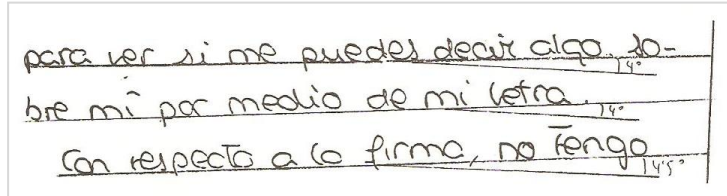 para ver si me puedes decir algo. so-
4°
bre mi por medio de mi letra.
4°
Con respecto a la firma, no Tengo
4'5°